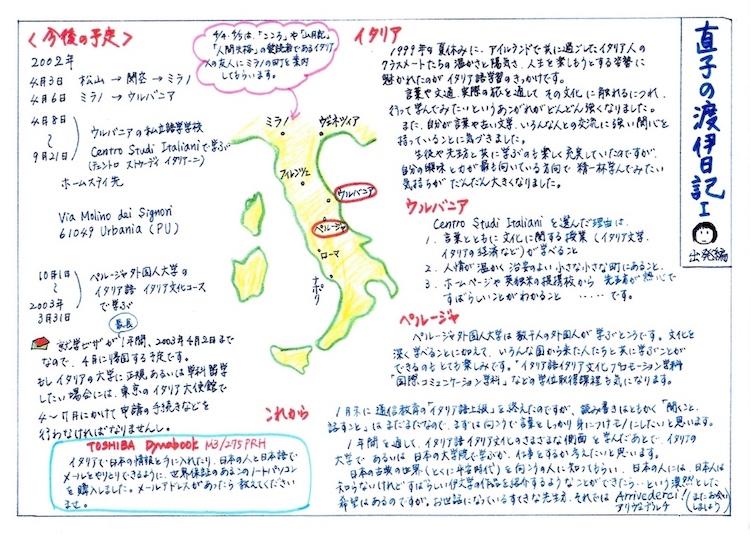 直子の渡伊日記 I
出発編
イタリア
1999年の夏休みに、アイルランドで共に過ごしたイタリア人の
クラスメートたちの温かさと陽気さ、人生を楽しもうとする姿勢に
魅かれたのがイタリア語学習のきっかけです。
言葉や文通、実際の旅を通して、その文化に触れるにつれ、
行って学んでみたいというあこがれがどんどん強くなりました。
また、自分が言葉や古い文学、いろんな人との交流に強い関心を
持っていることに気づきました。
生徒や先生と共に学ぶのも楽しく充実していたのですが、
自分の興味と力が最も向いている方向で精一杯学んでみたい
気持ちがだんだん大きくなりました。
ウルバニア
Centro Studi Italiani を選んだ理由は、
1. 言葉とともに文化に関する授業(イタリア文学、
イタリアの経済など)が学べること
2. 人情が温かく治安のよい小さな小さな町にあること、
3. ホームページや
すばらしいことがわかること ‥‥‥です。
ペルージャ
ペルージャ外国人大学は数千人の外国人が学ぶところです。文化を
深く学べることに加えて、いろんな国から来た人たちと共に学ぶことが
できるのもとても楽しみです。"イタリア語イタリア文化プロモーション学科"
"国際コミュニケーション学科"などの学位取得課程も気になります。
これから
1月末に通信教育の「イタリア語上級」を終えたのですが、読み書きはともかく「聞くこと、
話すこと」はまだまだなので、まずは向こうで言葉をしっかり身につけてモノにしたいと思います。
1年間を通して、イタリア語イタリア文化のさまざまな側面を学んだあとで、イタリアの
大学であるいは日本の大学院で学ぶか、仕事とするか考えたいと思います。
日本の古典の世界(とくに平安時代)を向こうの人に知ってもらい、日本の人には、日本人は
知らないけれどすばらしい伊文学の作品を紹介するようなことができたら…という漠然とした
希望はあるのですが。お世話になっているすてきな先生方、それでは Arrivederci!(またお会いしましょう)
アリヴェデルチ
<今後の予定>
2002年
4月3日 松山 → 関空 → ミラノ
4月6日 ミラノ → ウルバニア
4月8日
〜
9月21日
ウルバニアの私立語学学校
Centro Studi Italianiで学ぶ
(チェントロ ストゥーディ イタリアーニ)
ホームステイ先
Via Molino dai Signori
61049 Urbania (PU)
10月1日
〜
2003年
3月31日
ペルージャ外国人大学の
イタリア語 イタリア文化コース
で学ぶ
最長
就学ビザが1年間、2003年4月2日まで
なので、4月に帰国する予定です。
もしイタリアの大学に正規、あるいは単科留学
したい場合には、東京のイタリア大使館で
4〜7月にかけて申請の手続きなどを
行わなければなりませんし。
TOSHIBA Dynabook M3/275PRH
イタリアで日本の情報を手に入れたり、日本の人と日本語で
メールをやりとりできるように、世界保証のあるこのノートパソコン
を購入しました。メールアドレスがあったら教えてください
ませ。
4/4、4/5は、「こころ」や「山月記」
「人間失格」の愛読者であるイタリア
人の友人にミラノの町を案内
してもらいます。
ミラノ
ヴェネツィア
フィレンツェ
ウルバニア
ペルージャ
ローマ
ナポリ